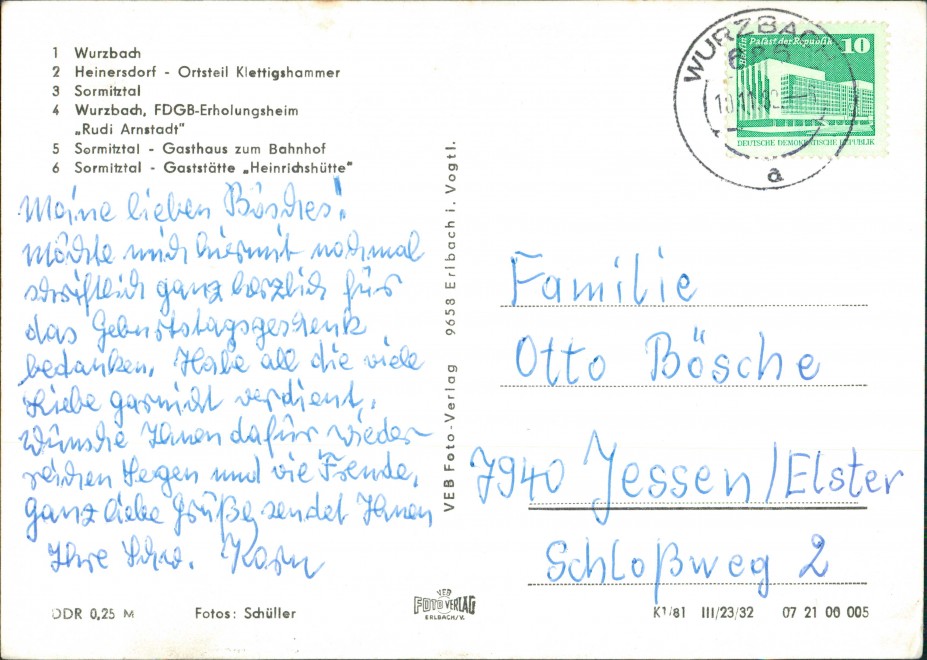 1 Wurzbach
2 Heinersdorf - Ortsteil Klettigshammer
3 Sormitztal
4 Wurzbach, FDGB-Erholungsheim
„Rudi Arnstadt"
5 Sormitztal - Gasthaus zum Bahnhof
6 Sormitztal - Gaststätte „Heinrichshütte"
Meine lieben Bösches!
Möchte mich hiermit nochmal
schriftlich ganz herzlich für
das Geburtstagsgeschenk
bedanken. Habe all die viele
Liebe garnicht verdient,
wünsche Ihnen dafür wieder
reichen Segen und vie Freude.
Ganz liebe Grüße sendet Ihnen
Ihre Schw.
DDR 0,25 M
Fotos: Schüller
VEB Foto-Verlag 9658 Erlbach i. Vogtl.
VEB
FOTO VERLAG
ERLBACH/V.
WURZBACH
a
Palast der Republik 10
DEUTSCHE DEMOKRATISCHE REPUBLIK
Familie
Otto Bösche
7940 Jessen/Elster
Schloßweg 2
K1/81 III/23/32 07 21 00 005